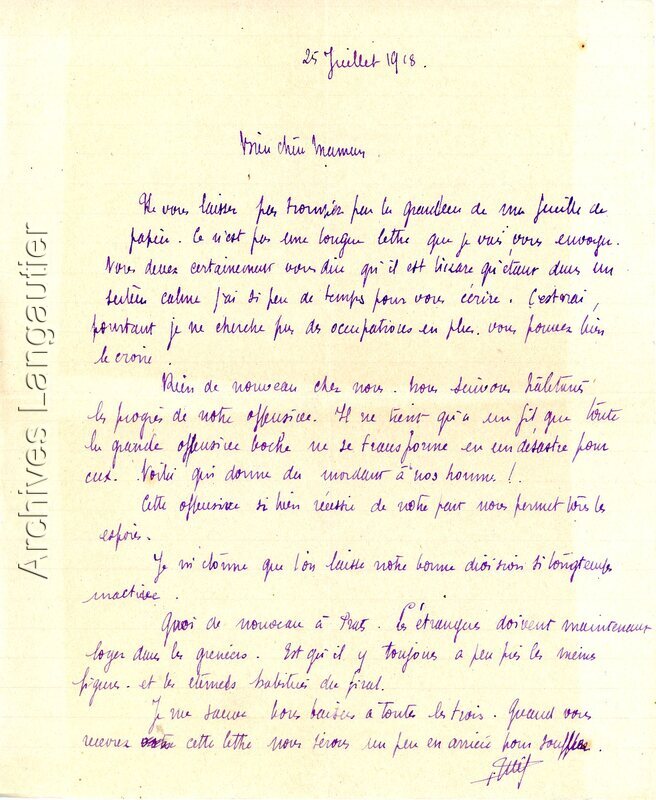 25 Juillet 1918.
Bien chère Maman
Ne vous laissez pas tromper par la grandeur de ma feuille de
papier. Ce n'est pas une longue lettre que je vais vous envoyer.
Vous devez certainement vous dire qu'il est bizare qu'étant dans un
secteur calme j'ai si peu de temps pour vous écrire. C'est vrai,
pourtant je ne cherche pas des occupations en plus. vous pouvez bien
le croire.
Rien de nouveau chez nous. Nous suivons haletants
les progrès de notre offensive. Il ne tient qu'à un fil que toute
la grande offensive boche ne se transforme en un désastre pour
eux. Voilà qui donne du mordant à nos hommes !.
Cette offensive si bien réussie de notre part nous permet tous les
espoirs.
Je m'étonne que l'on laisse notre bonne division si longtemps
inactive.
Quoi de nouveau à Prats. Les étrangers doivent maintenant
loger dans les greniers. Est qu'il y toujours a peu près les mêmes
figures. et les éternels habitués du
Je me sauve bons baisers a toutes les trois. Quand vous
recevrez cette lettre nous serons un peu en arrière pour souffler.
Archives Langautier